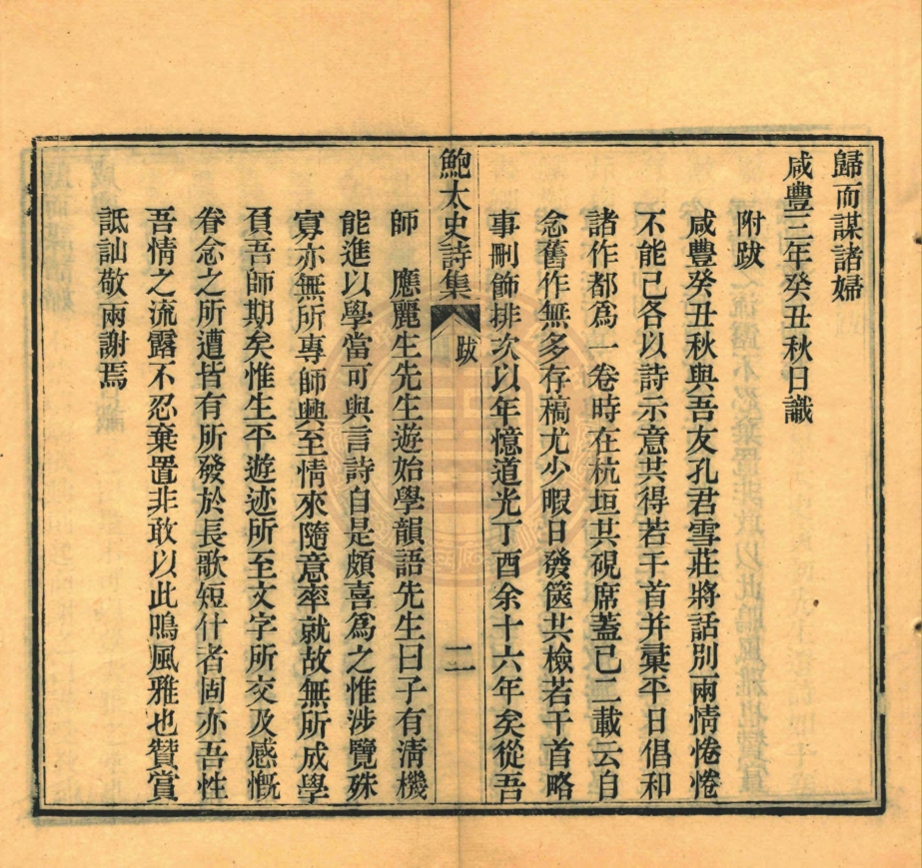 歸而謀諸婦
咸豐三年癸丑秋日識
附跋
咸豐癸丑秋與吾友孔君雪莊將話別兩情惓惓
不能已各以詩示意共得若干首并彚平日倡和
諸作都爲一卷時在杭垣共硯席蓋已二載云自
念舊作無多存稿尤少暇日發篋共檢若干首略
事刪飾排次以年憶道光丁酉余十六年矣從吾
鮑太史詩集 跋 二
師 應麗生先生遊始學韻語先生曰子有淸機
能進以學當可與言詩自是頗喜爲之惟涉覽殊
寡亦無所專師興至情來隨意率就故無所成學
負吾師期矣惟生平遊迹所至文字所交及感慨
眷念之所遭皆有所發於長歌短什者固亦吾性
吾情之流露不忍棄置非敢以此鳴風雅也贊賞
詆訕敬兩謝焉